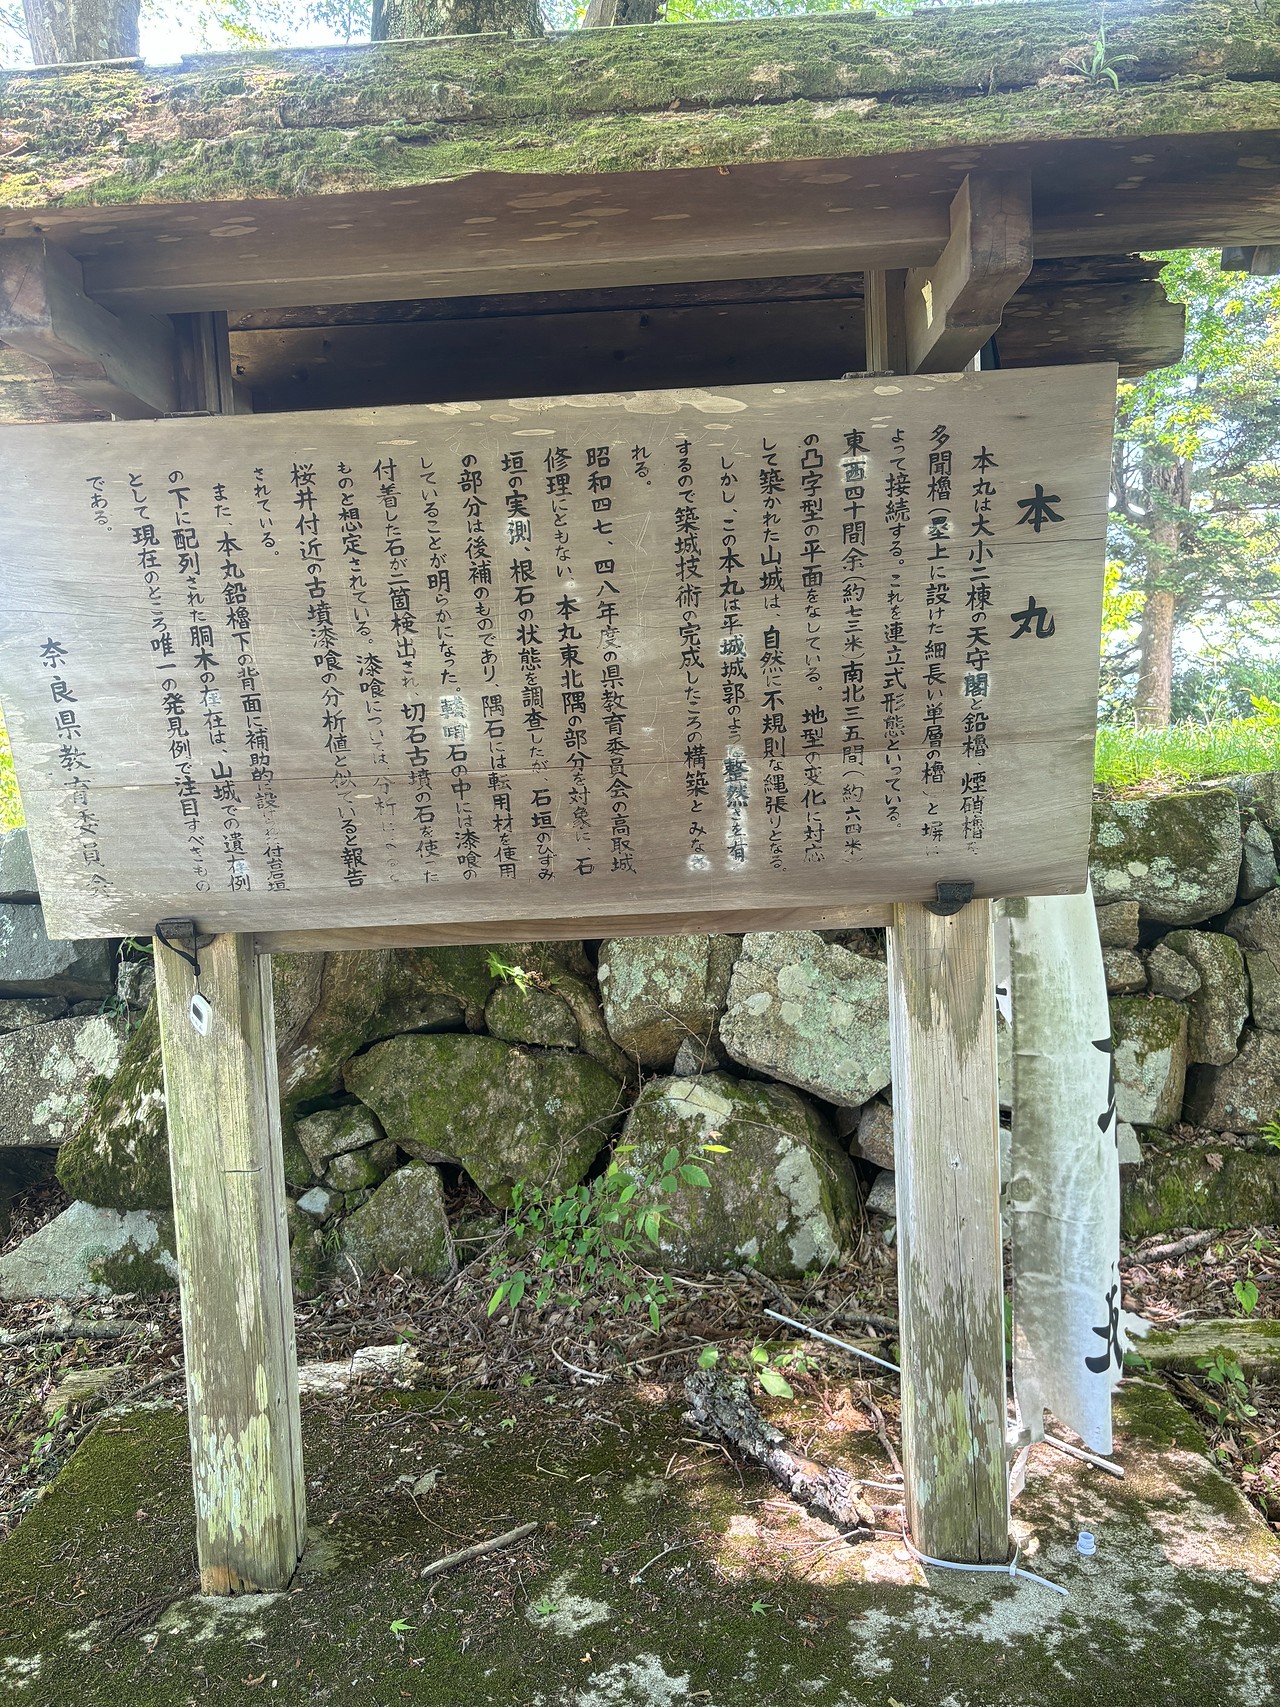 本丸
本丸は大小二棟の天守閣と鉛櫓、煙硝櫓を
多聞櫓(塁上に設けた細長い単層の櫓)と塀に
よって接続する。これを連立式形態といっている。
東西四十間余(約七三米)南北三五間(約六四米)
の凸字型の平面をなしている。地型の変化に対応
して築かれた山城は、自然に不規則な縄張りとなる。
しかし、この本丸は平城城郭のよう 整然さを有
するので築城技術の完成したころの構築とみなさ
れる。
昭和四七、四八年度の県教育委員会の高取城
修理にともない、本丸東北隅の部分を対象に、石
垣の実測、根石の状態を調査したが、石垣のひずみ
の部分は後補のものであり、隅石には転用材を使用
していることが明らかになった。転用石の中には漆喰の
付着した石が二箇検出され、切石古墳の石を使った
ものと想定されている。漆喰については、分析によると
桜井付近の古墳漆喰の分析値と似ていると報告
されている。
また、本丸鉛櫓下の背面に補助的に設けた付台石垣
の下に配列された胴木の存在は、山城での遺存例
として現在のところ唯一の発見例で注目すべきもの
である。
奈良県教育委員会